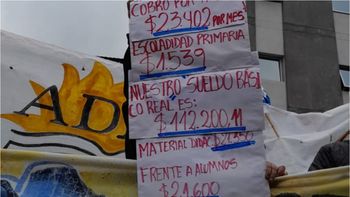 COBRO POR
$23.402 POR MES
ESCOLADIDAD PRIMARIA
$1.539
NUESTRO SUELDO BASI
CO REAL ES:
$112.200.11
MATERIAL DIDAC
FRENTE A ALUMNOS
$21.600
AD